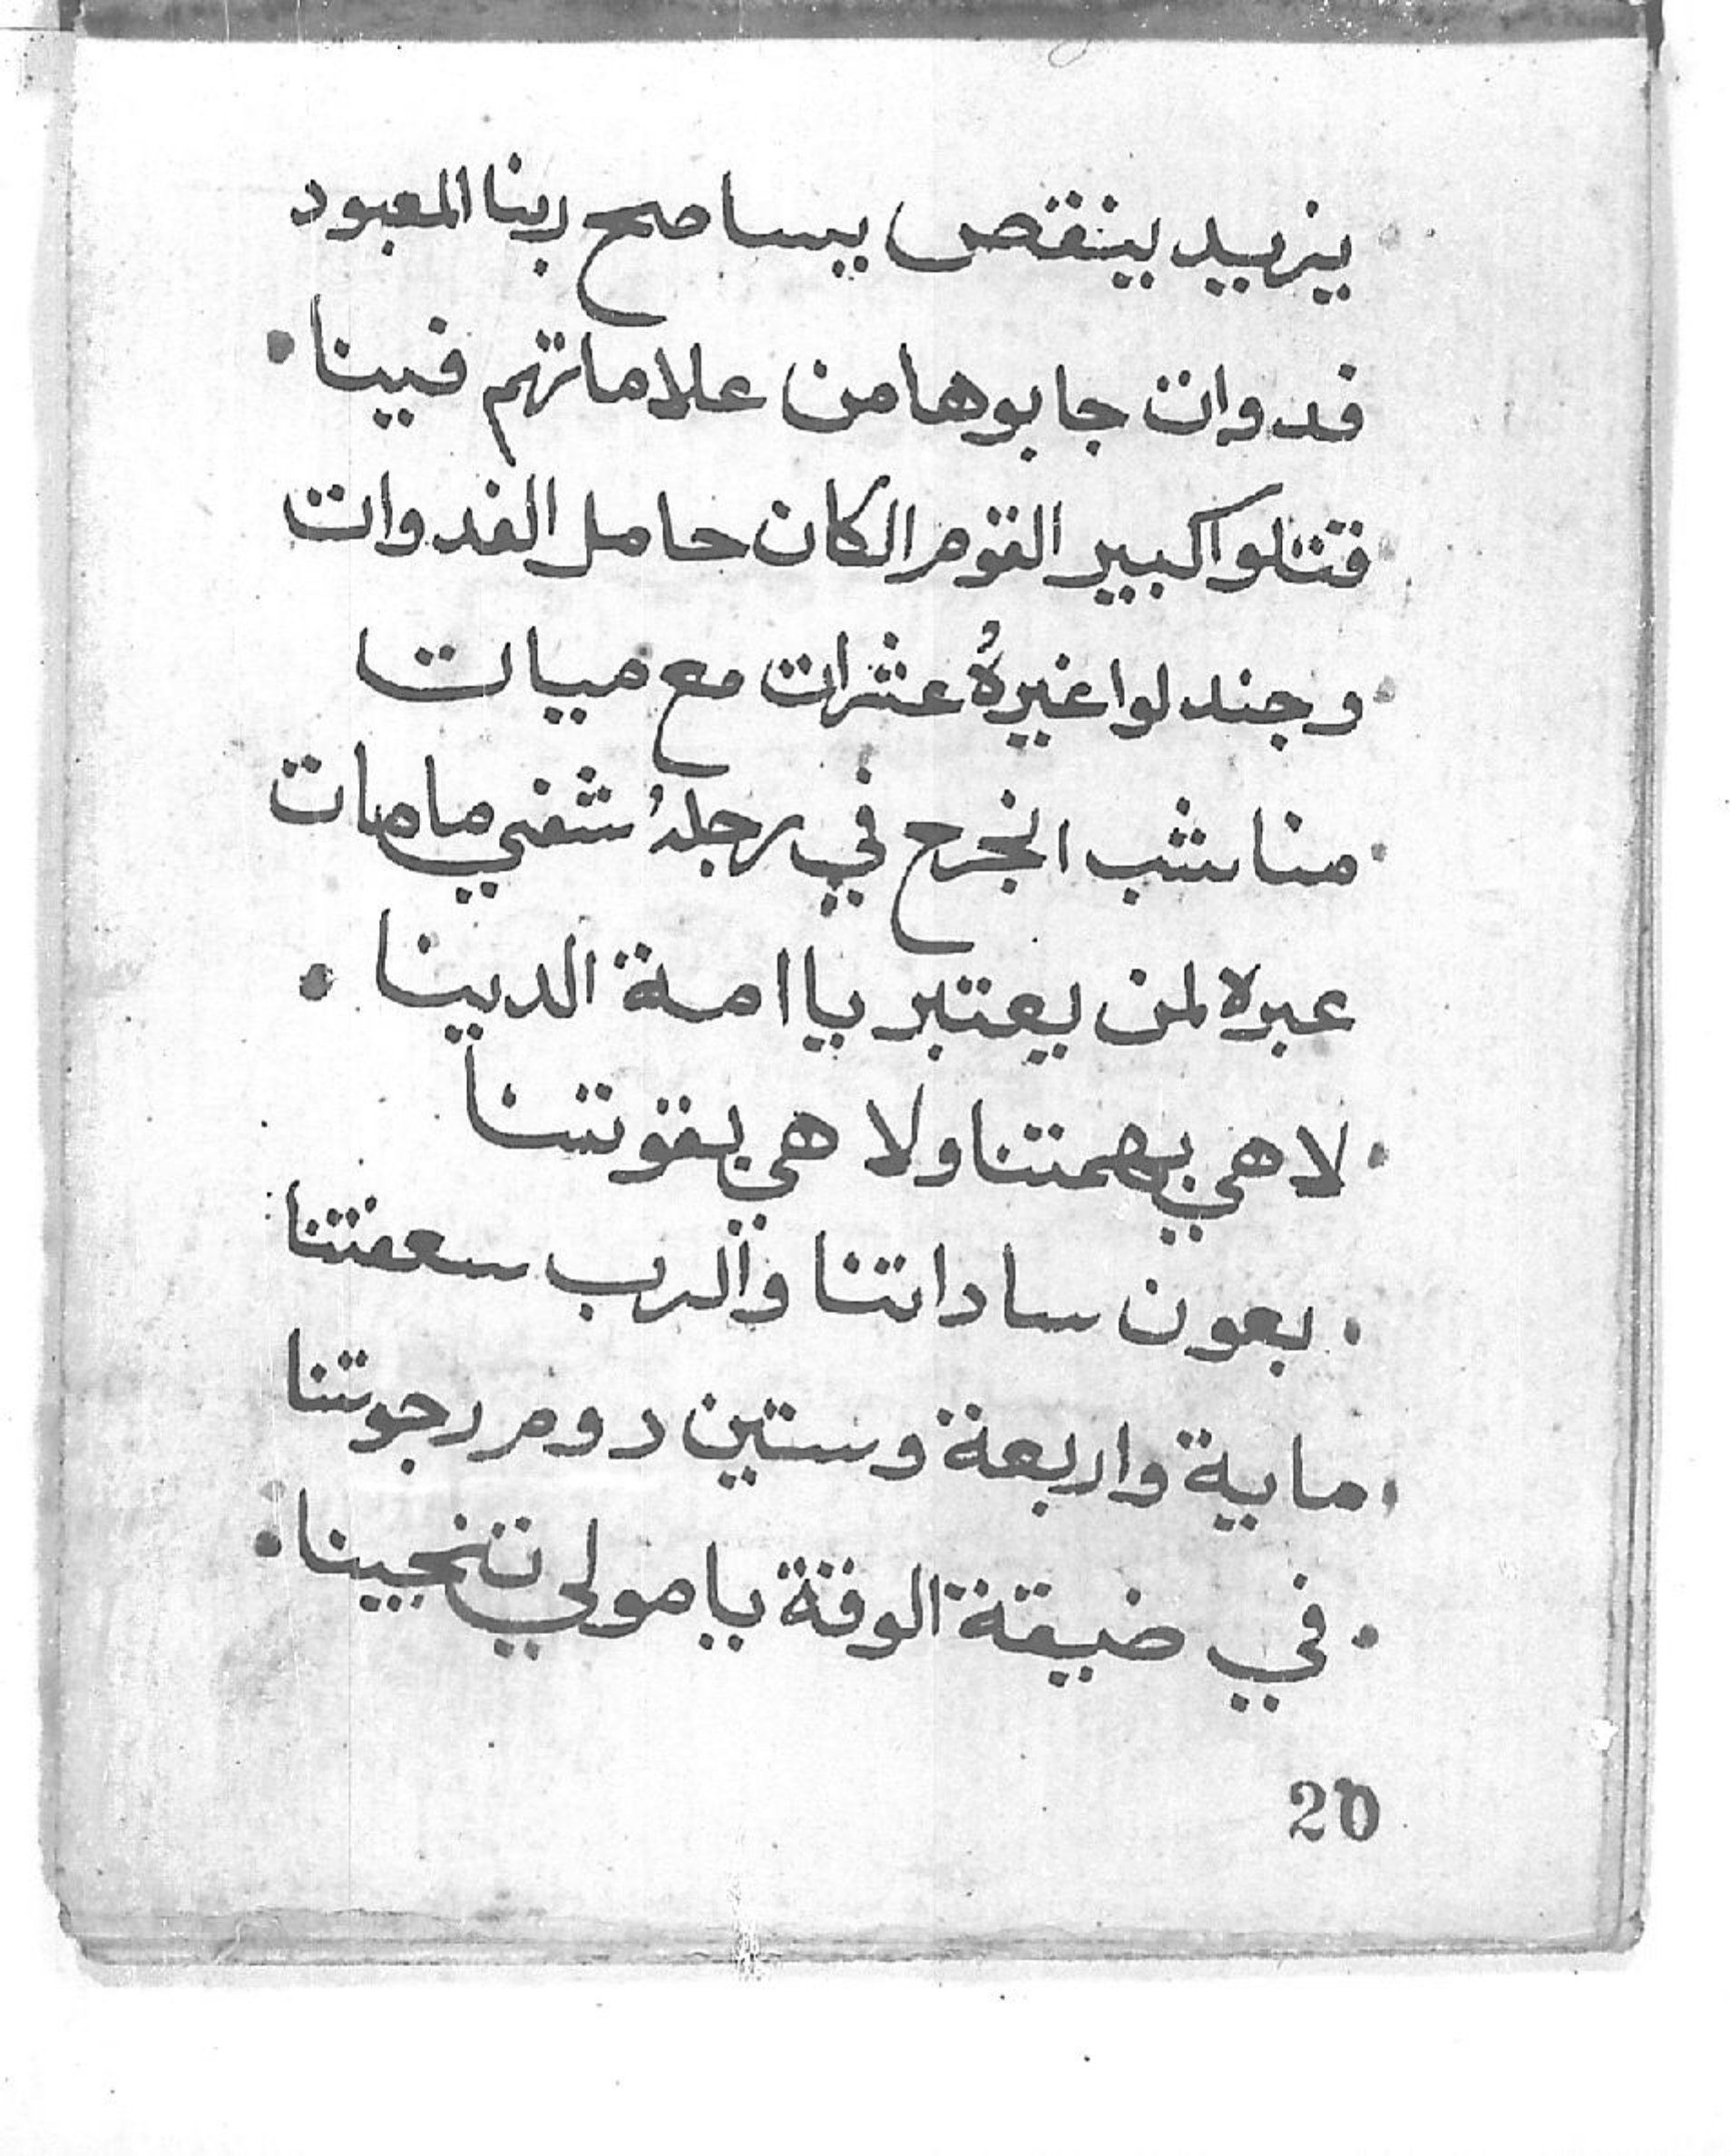 يزيد ينقص يسامح ربنا المعبود
فدوات جابوها من علاماتهم فينا
قتلوا كبير القوم الكان حامل الفدوات
وجندلوا غيرهُ عشرات مع ميات
منا نشب انجرح في رجلهُ شفي ما مات
عبرة لمن يعتبر يا امة الدينا
لا هي بهمتنا ولا هي بقوتنا
بعون ساداتنا والرب سعفتنا
ماية واربعة وستين دوم رجوتنا
في ضيقة الوقة يا مولي تنجينا
20